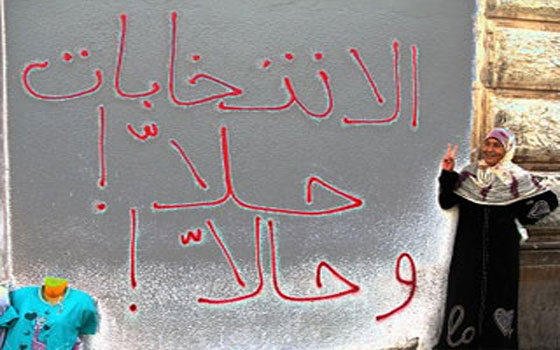 الانتخابات
حلاّ !
و حالاّ !